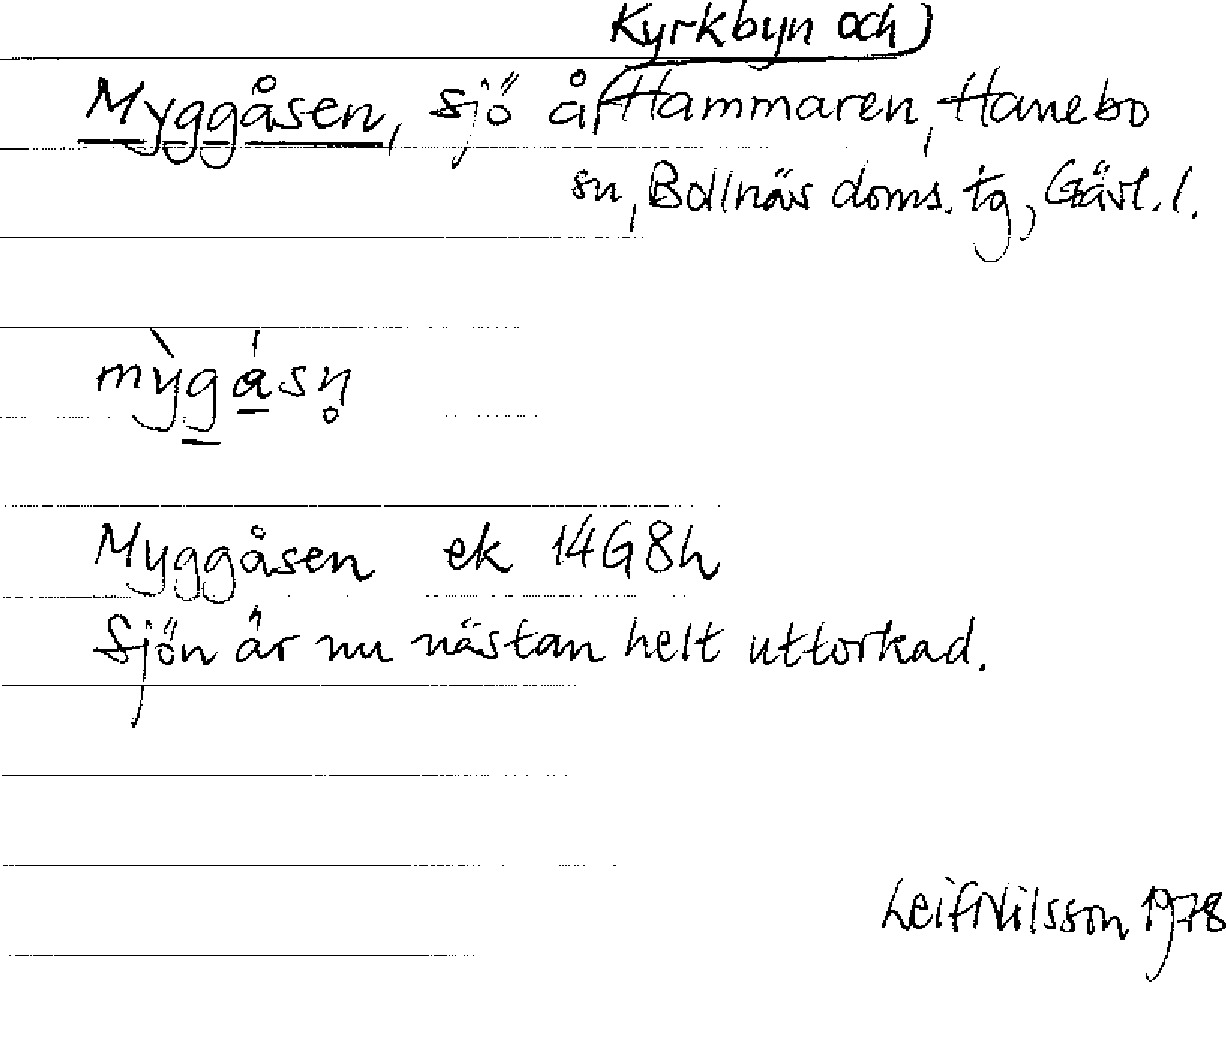 Kyrkbyn och
Myggåsen, sjö å Hammaren, Hanebo
sn, Bollnäs doms. tg, Gävl. l.
mỳgásn̥
Myggåsen ek 14G8h
Sjön är nu nästan helt uttorkad.
Leif Nilsson 1978